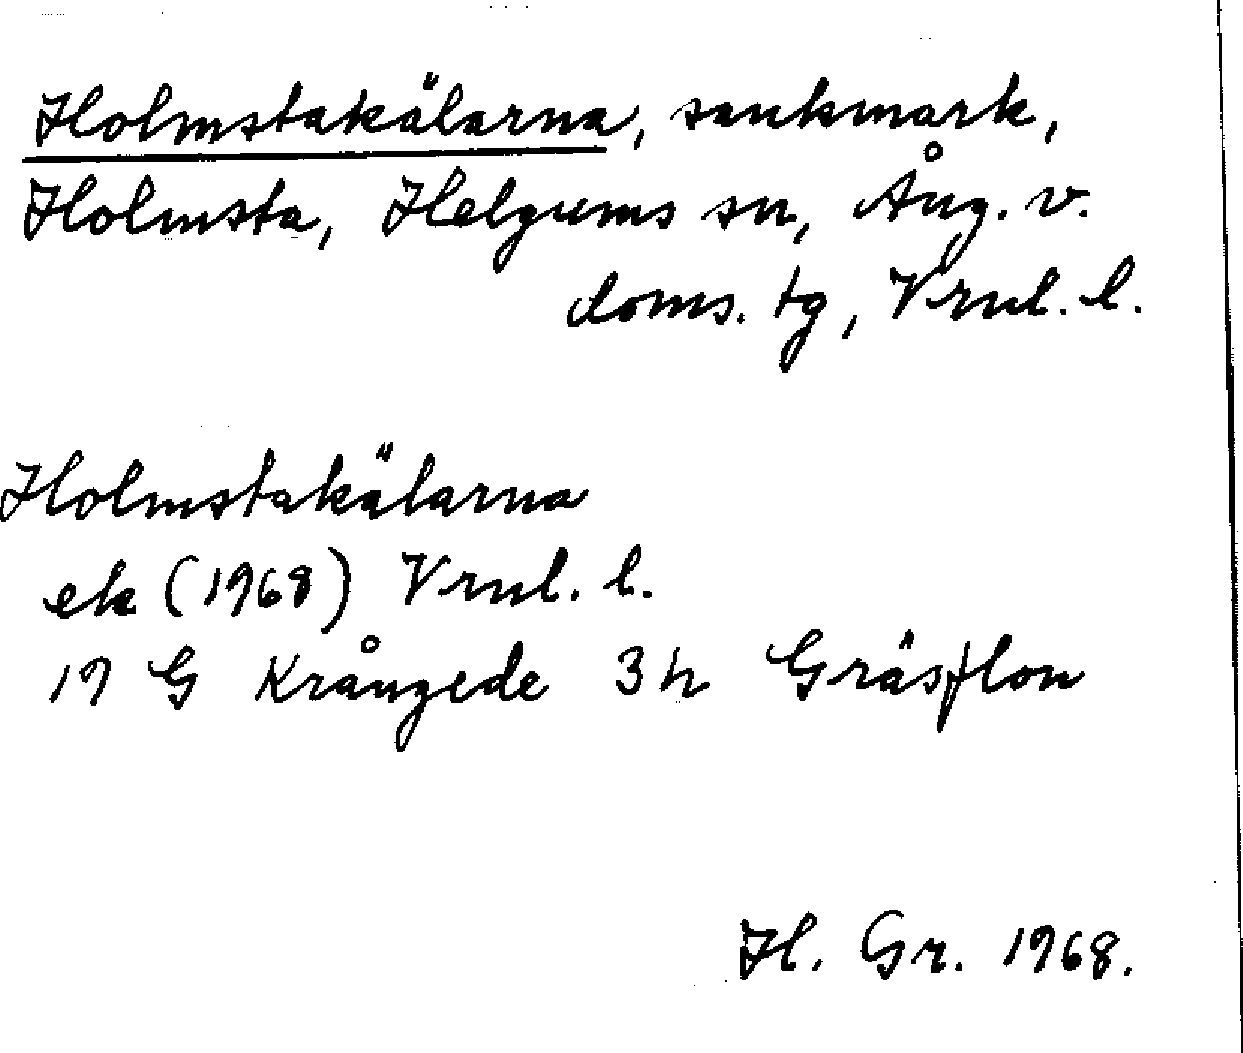 Holmstakälarna, sankmark,
Holmsta, Helgums sn, Ång. v.
doms. tg, Vrnl. l.
Holmstakälarna
ek (1968) Vrnl. l.
19 G Krångede 3 h Gräsflon
H. Gr. 1968.